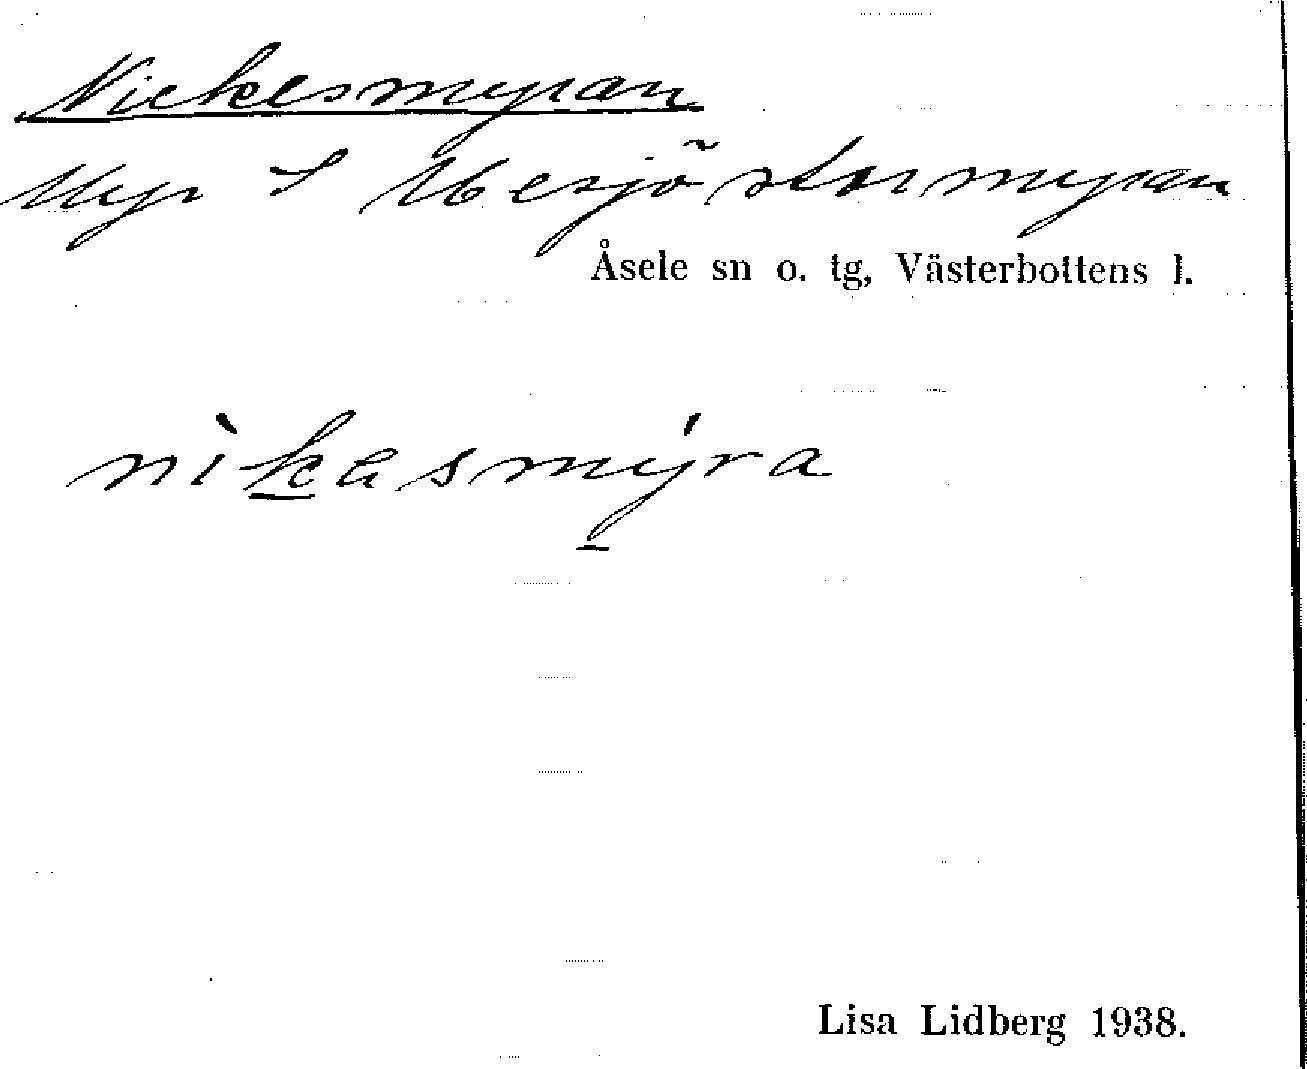 Nickesmyran
Myr S Mesjöstormyran
Åsele sn o. tg, Västerbottens l.
nìkasmýra
Lisa Lidberg 1938.